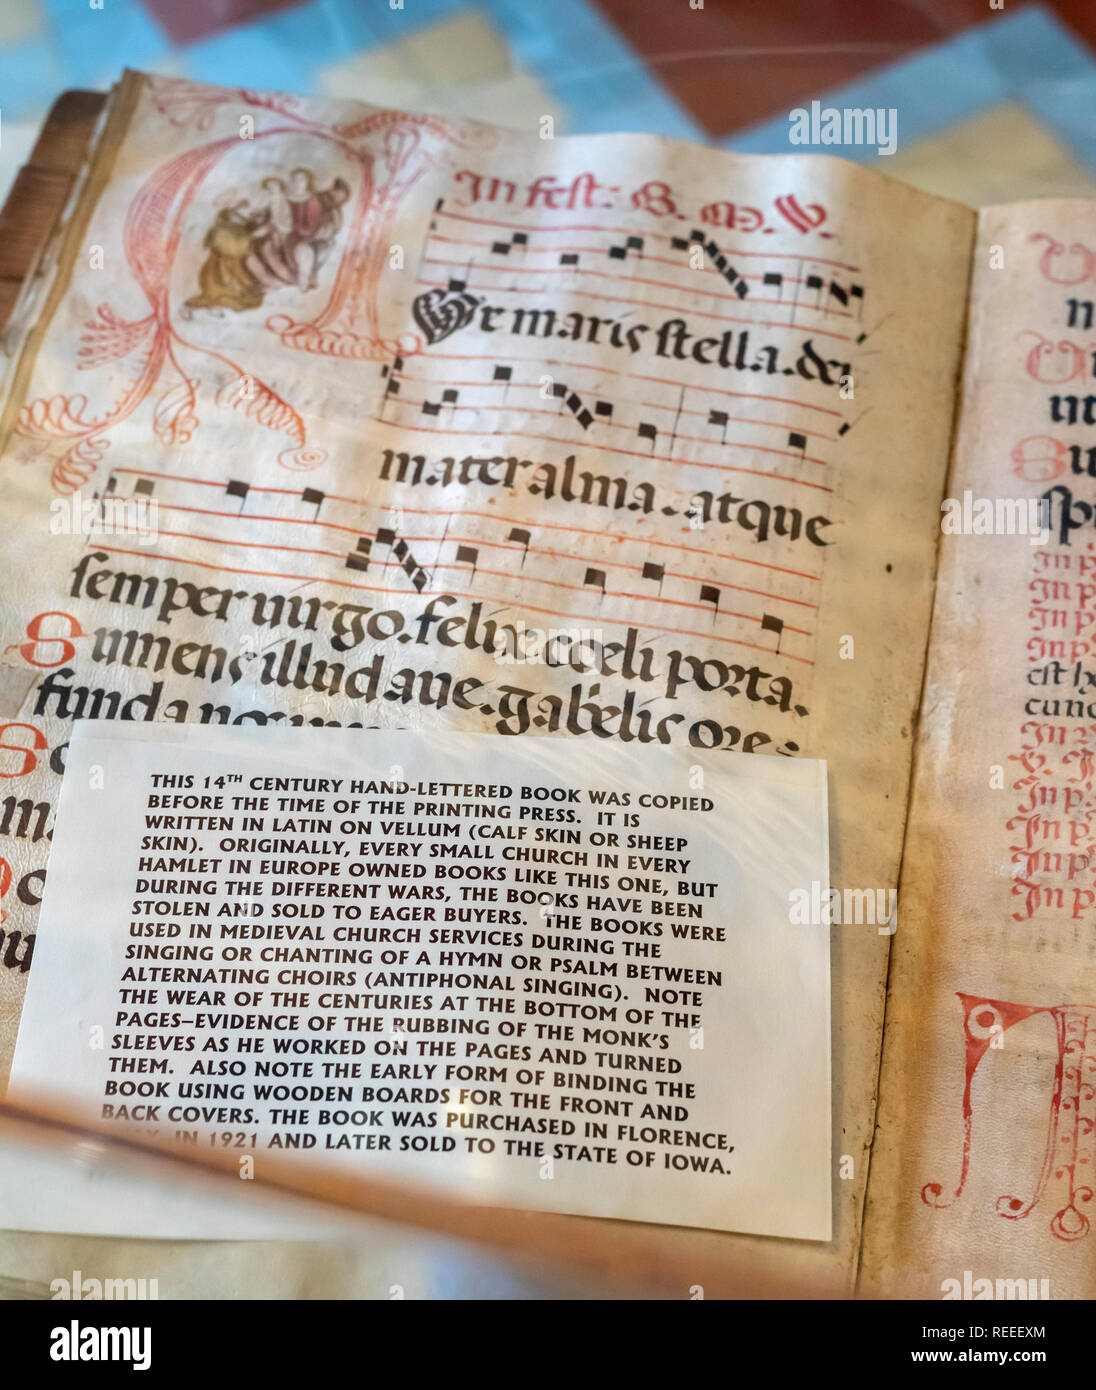 In fest: B. M. V.
Ve maris stella. dei
mater alma. atque
semper uirgo. felix cœli porta.
Sumens illud aue. gabrielis ore.
funda nos
THIS 14TH CENTURY HAND-LETTERED BOOK WAS COPIED
BEFORE THE TIME OF THE PRINTING PRESS. IT IS
WRITTEN IN LATIN ON VELLUM (CALF SKIN OR SHEEP
SKIN). ORIGINALLY, EVERY SMALL CHURCH IN EVERY
HAMLET IN EUROPE OWNED BOOKS LIKE THIS ONE, BUT
DURING THE DIFFERENT WARS, THE BOOKS HAVE BEEN
STOLEN AND SOLD TO EAGER BUYERS. THE BOOKS WERE
USED IN MEDIEVAL CHURCH SERVICES DURING THE
SINGING OR CHANTING OF A HYMN OR PSALM BETWEEN
ALTERNATING CHOIRS (ANTIPHONAL SINGING). NOTE
THE WEAR OF THE CENTURIES AT THE BOTTOM OF THE
PAGES–EVIDENCE OF THE RUBBING OF THE MONK'S
SLEEVES AS HE WORKED ON THE PAGES AND TURNED
THEM. ALSO NOTE THE EARLY FORM OF BINDING THE
BOOK USING WOODEN BOARDS FOR THE FRONT AND
BACK COVERS. THE BOOK WAS PURCHASED IN FLORENCE,
IN 1921 AND LATER SOLD TO THE STATE OF IOWA.
In p
In p
In p
In p
est h
cunc
In p
In p
In p
In p
alamy
Image ID: REEEXM
www.alamy.com